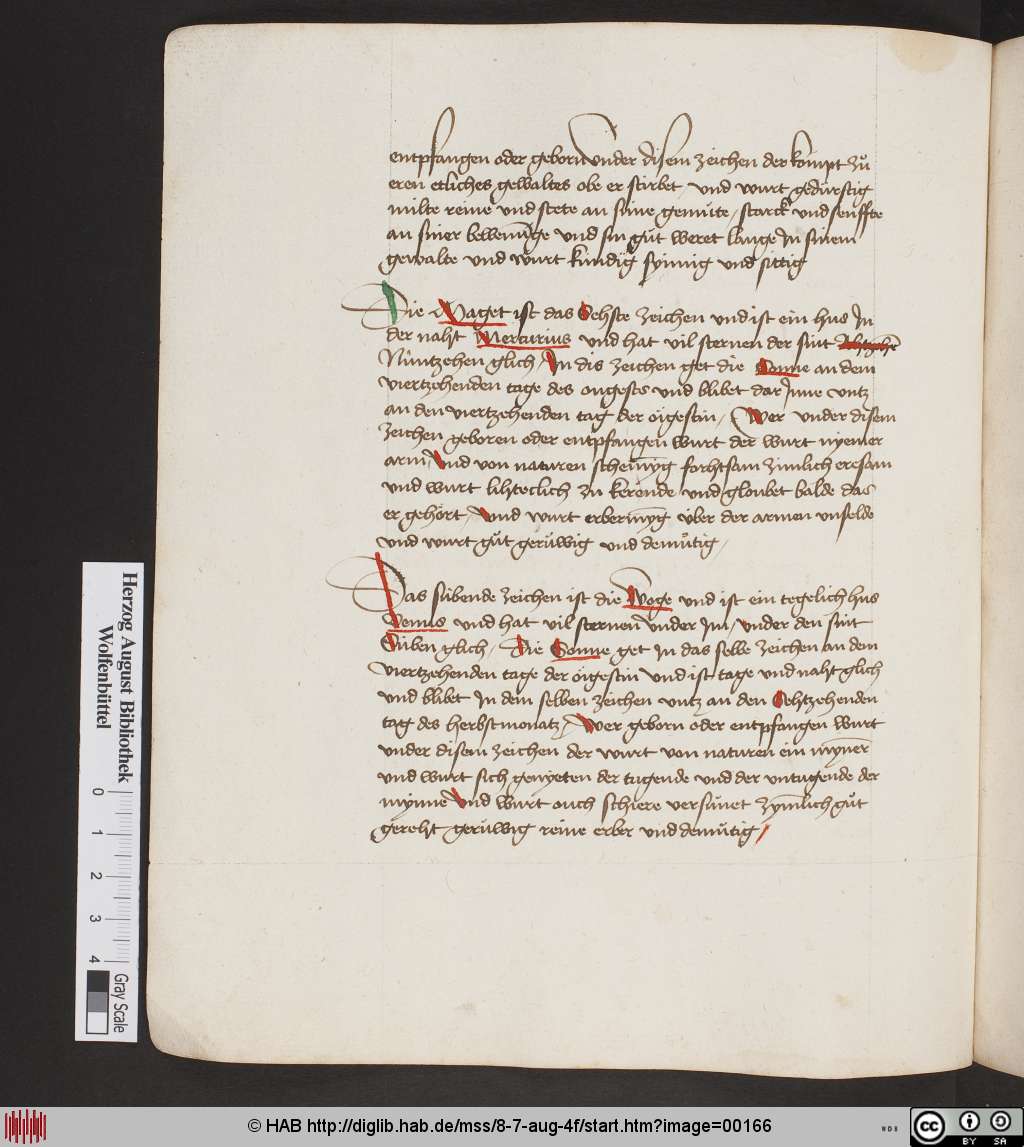 entpfangen oder geborn vnder disem zeichen der kompt zů
eren etliches gewaltes obe er stirbet vnd wurt gedúrstig
milte reine vnd stete an sime gemúte / starck vnd senffte
an siner bewenūge vnd sin gůt weret lange Jn sinem
gewalte vnd wurt kundig synnig vnd sittig
Die Maget ist das Sehste zeichen vnd ist ein hus Jn
der naht Mercurius vnd hat vil sternen der sint
Núntzehen glich / Jn dis zeichen get die Sonne an dem
viertzehenden tage des ougests vnd blibet dar Jnne vntz
an den viertzehenden tag der ôigestin / Wer vnder disem
zeichen geboren oder entpfangen wurt der wurt nyemer
arm / Vnd von naturen forhtsam zimlich eresam
vnd wurt lihteclich zu kerende vnd gloubet balde das
er gehôrt / vnd wurt erbermyg úber der armen vnselde
vnd wurt gůt gerúwig vnd demůtig /
Das súbende zeichen ist die Woge vnd ist ein tegelich hus
Venus vnd hat vil sternen vnder Jm / vnder den sint
Súben glich / Die Sonne get Jn das selbe zeichen an dem
viertzehenden tage der ôigestin vnd ist tage vnd naht glich
vnd blibet Jn dem selben zeichen vntz an den Sehtzehenden
tag des herbstmonatz / Wer geborn oder entpfangen wurt
vnder disem zeichen der wurt von naturen ein mynēr
vnd wurt sich genyeten der tugende vnd der vntugende der
mynne Vnd wurt ouch schiere versúnet zymlich gůt
gereht gerúwig reine erber vnd demůtig /
Herzog August Bibliothek
Wolfenbüttel
0 1 2 3 4
Gray Scale
© HAB http://diglib.hab.de/mss/8-7-aug-4f/start.htm?image=00166
WDB
CC BY SA